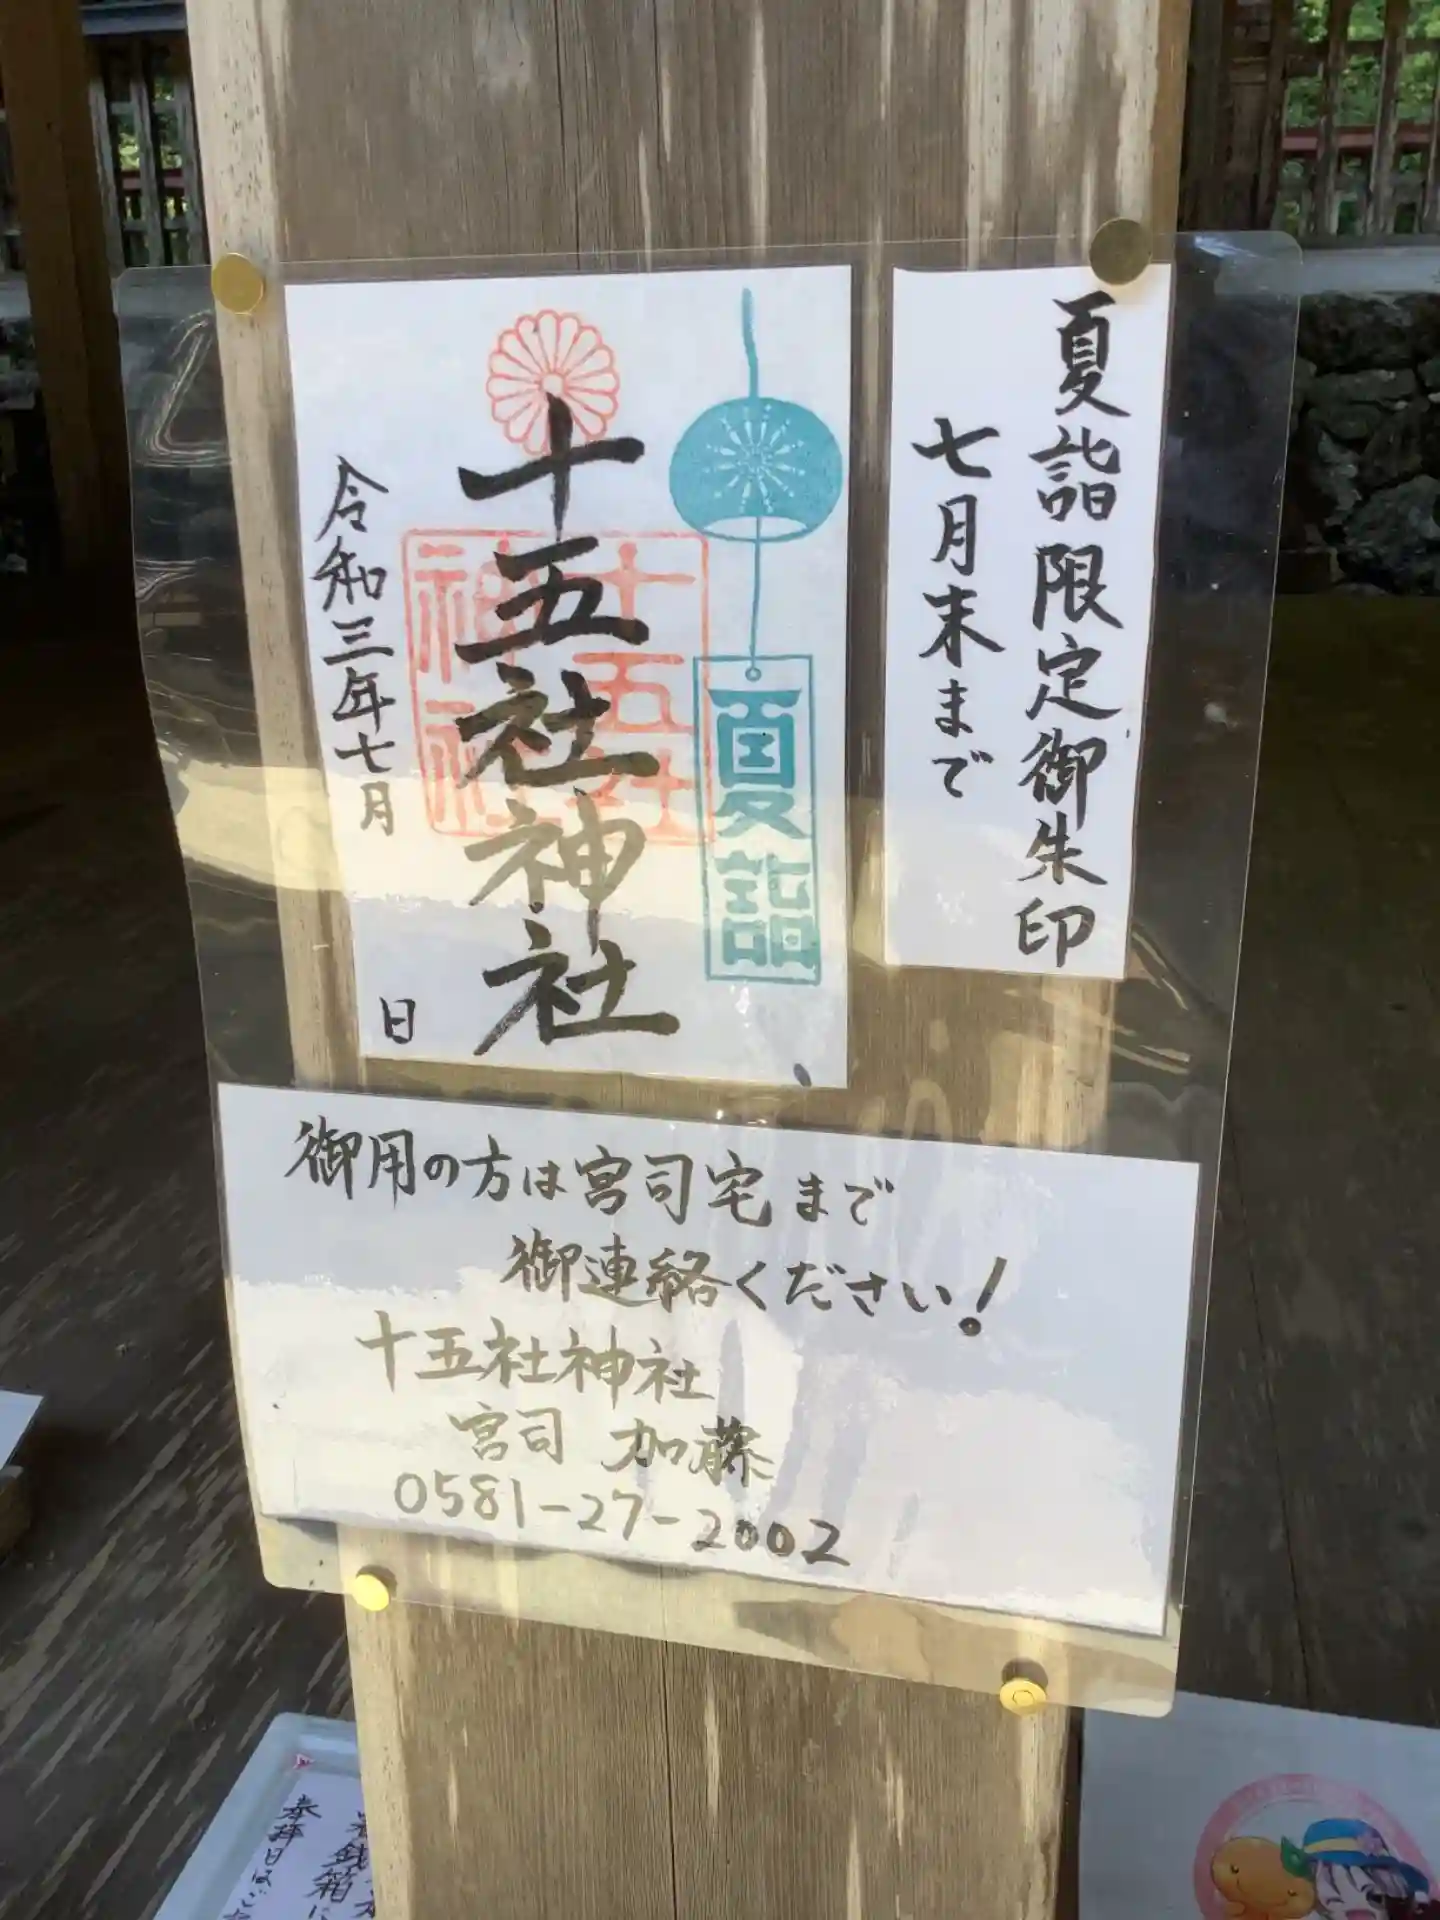 夏詣限定御朱印
七月末まで
夏詣
十五社神社
十五社
神社
令和三年七月
日
御用の方は宮司宅まで
御連絡ください!
十五社神社
宮司 加藤
0581-27-2002
奉拝日はご